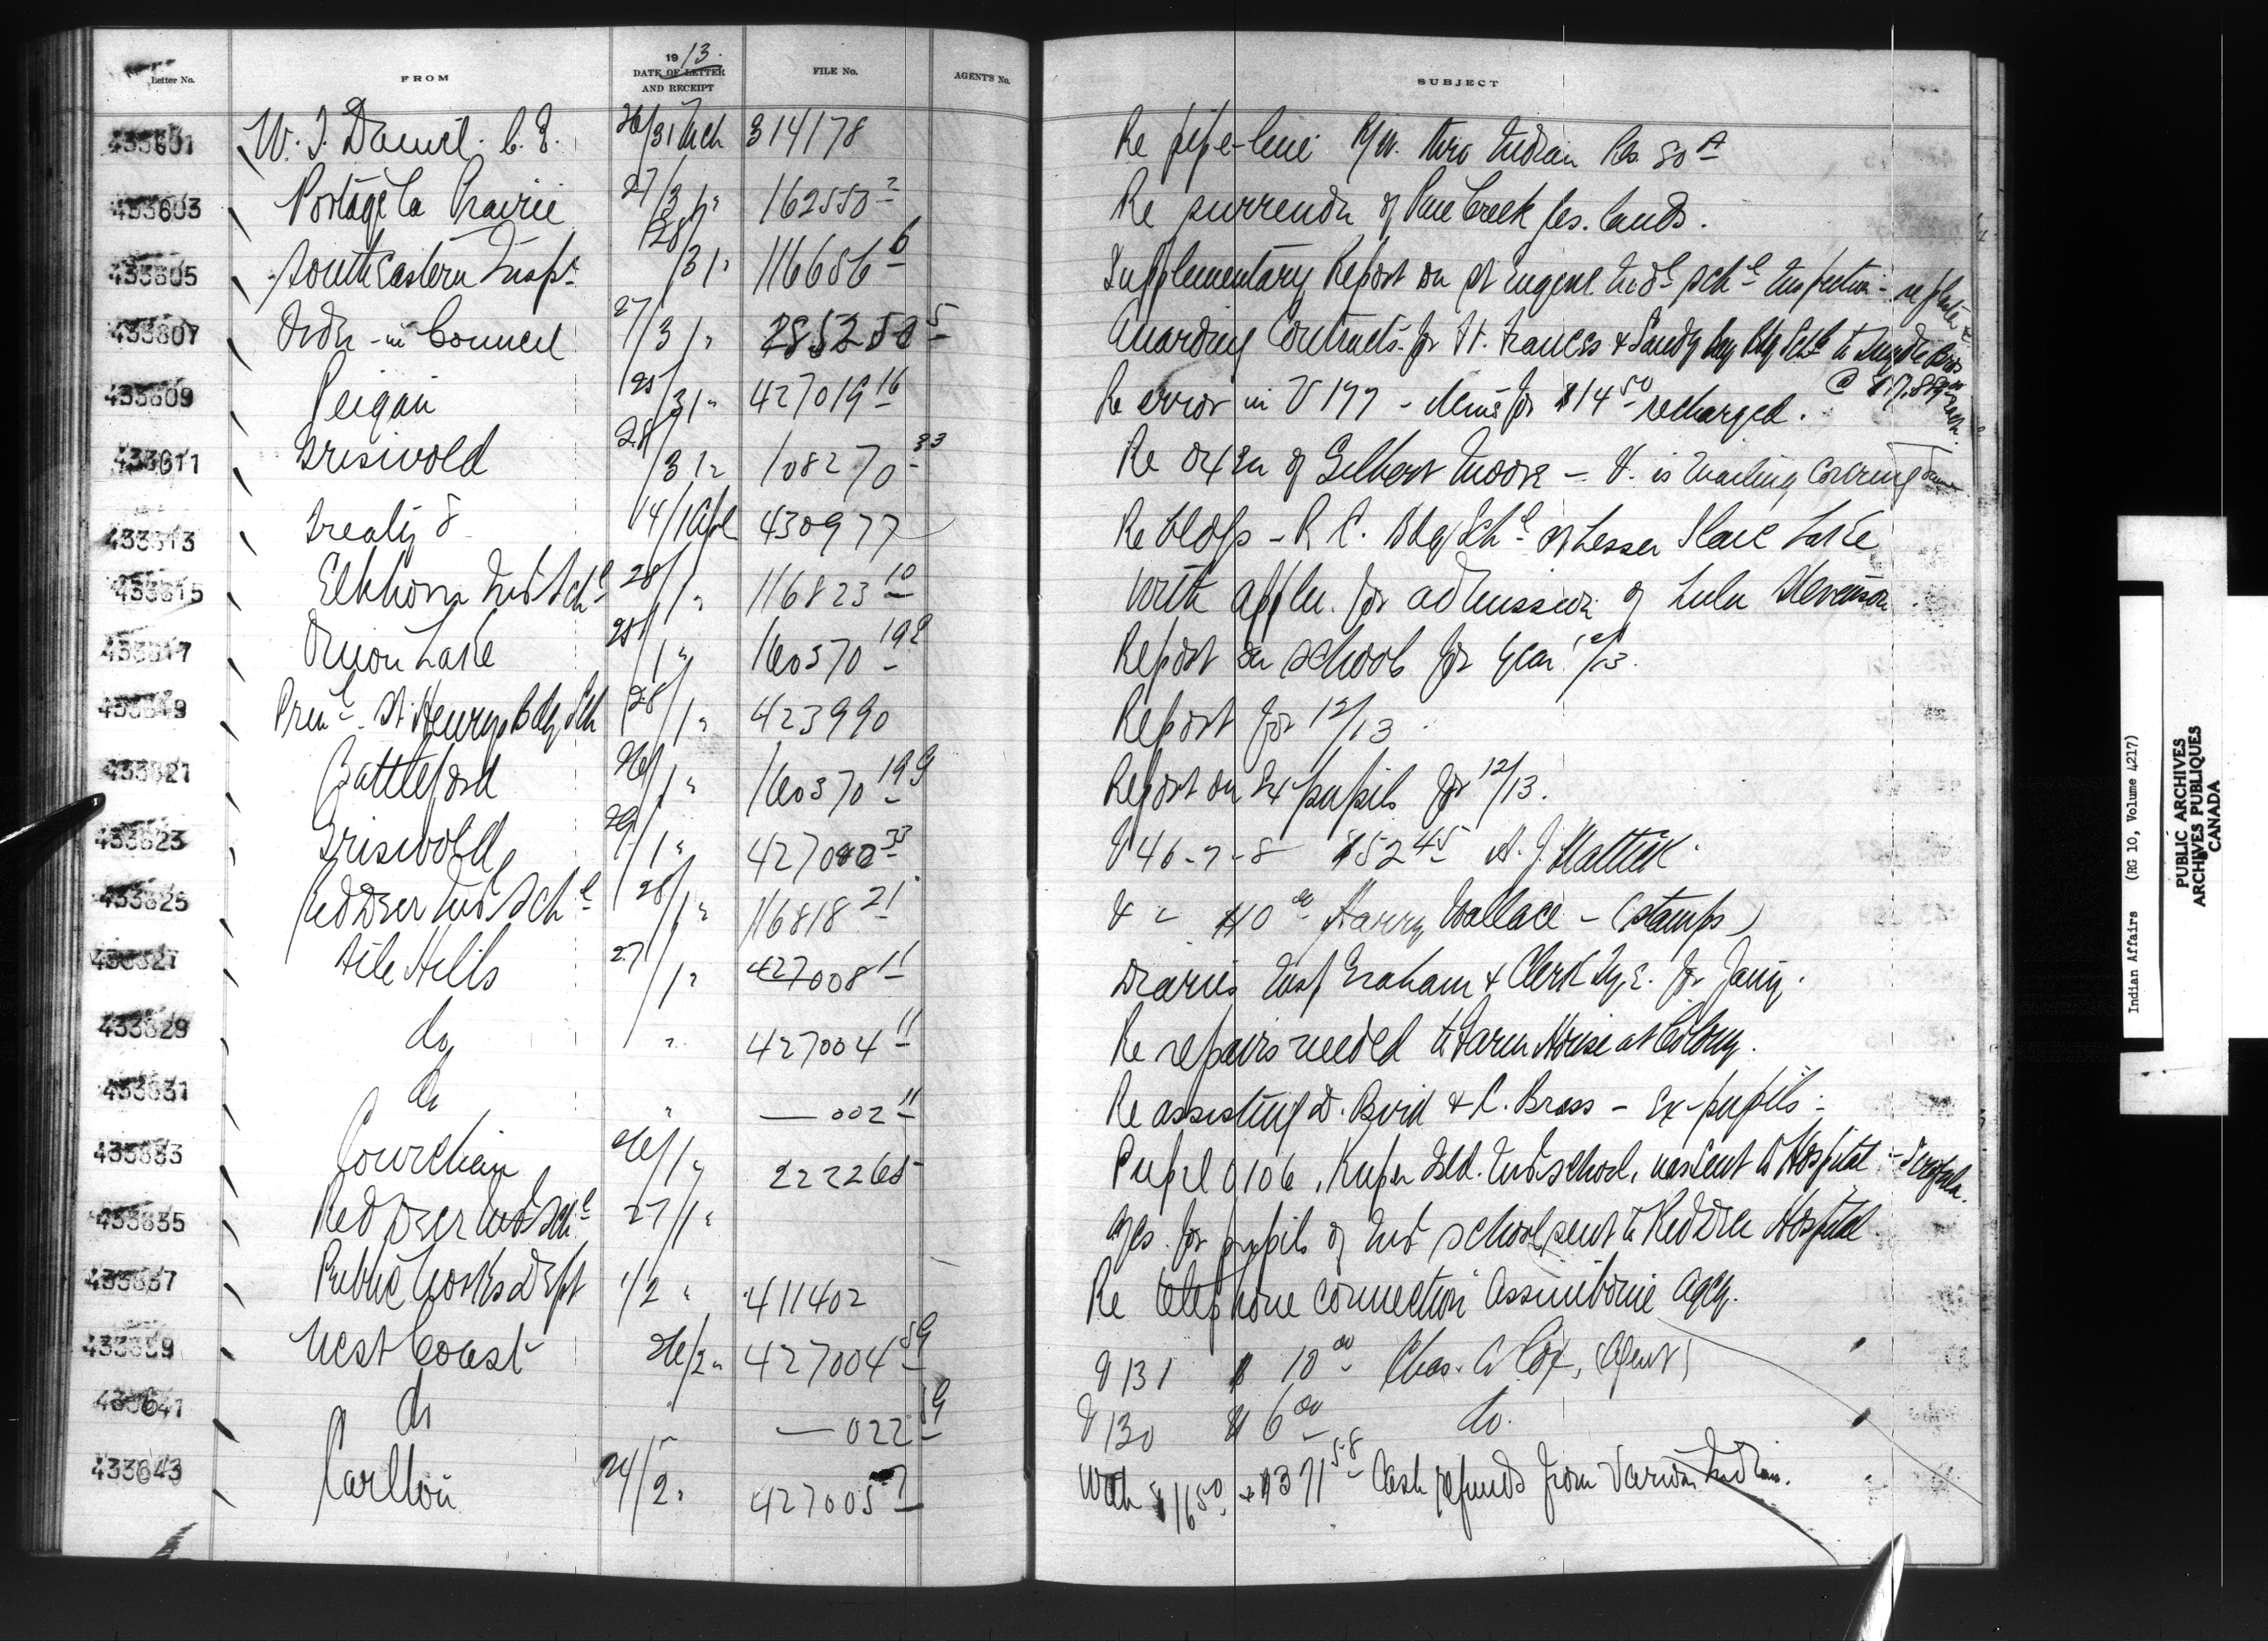 Letter No. FROM 1913. DATE OF LETTER AND RECEIPT FILE No. AGENT'S No. SUBJECT
433601 W. J. C. E. 26/31 Mch 314178 Re pipe-line R/W. thro Indian Res. 80 A
433603 Portage la Prairie 27/31 " 162550 2 Re surrender of Pine Creek Res. lands.
433605 South Eastern Insp. 28/31 " 116686 6 Supplementary Report on St Eugene Indl Schl Inspection -
433607 Order-in-Council 27/31 " 285250 5 Awarding Contracts for Ft. Frances & Sandy Bay Bdg Schls to Bros @
433609 Peigan 25/31 " 427019 16 Re error in V 177 - Items for $14 50 recharged.
433611 Griswold 28/31 " 108270 33 Re oxen of Gilbert Moore - V. is mailing covering same
433613 Treaty 8 14/1 Apl 430977 Re bldgs - R. C. Bdg Schl at Lesser Slave Lake
433615 Elkhorn Ind Schl 28/1 " 116823 10 With appln. for admission of Lulu Stevenson.
433617 Onion Lake 25/1 " 160370 192 Report on schools for year 12/13.
433619 Prinl St Henry's Bdg Sch 28/1 " 423990 Report for 12/13.
433621 Battleford 26/1 " 160370 199 Report on Ex-pupils for 12/13.
433623 Griswold 29/1 " 427002 33 V 46-7-8 $52 45 A. J.
433625 Red Deer Ind Schl 28/1 " 116818 21 V - $10 00 Harry Wallace - (stamps)
433627 File Hills 27/1 " 427008 11 Diaries Insp Graham & Clerk for Jany.
433629 do " 427004 11 Re repairs needed to Farm House at Colony.
433631 do " — 002 11 Re assisting D. Bird & C. Brass - Ex-pupils.
433633 Cowichan 26/1 " 222265 Pupil 0106, Kuper Isld. Ind. school, was sent to Hospital - Scrofula.
433635 Red Deer Ind Schl 27/1 " for pupils of Ind school sent to Red Deer Hospital
433637 Public Works Dept 1/2 " 411402 Re telephone connection Assiniboine Agcy.
433639 West Coast 26/2 " 427004 59 V 131 $ 10 00 Chas. A Cox, (Agent)
433641 do " — 022 59 V 130 $ 6 00 do.
433643 Carlton 24/2 " 427005 7 With $16 50 + $371 58 Cash refunds from various Indians.
Indian Affairs (RG 10, Volume 4217)
PUBLIC ARCHIVES
ARCHIVES PUBLIQUES
CANADA